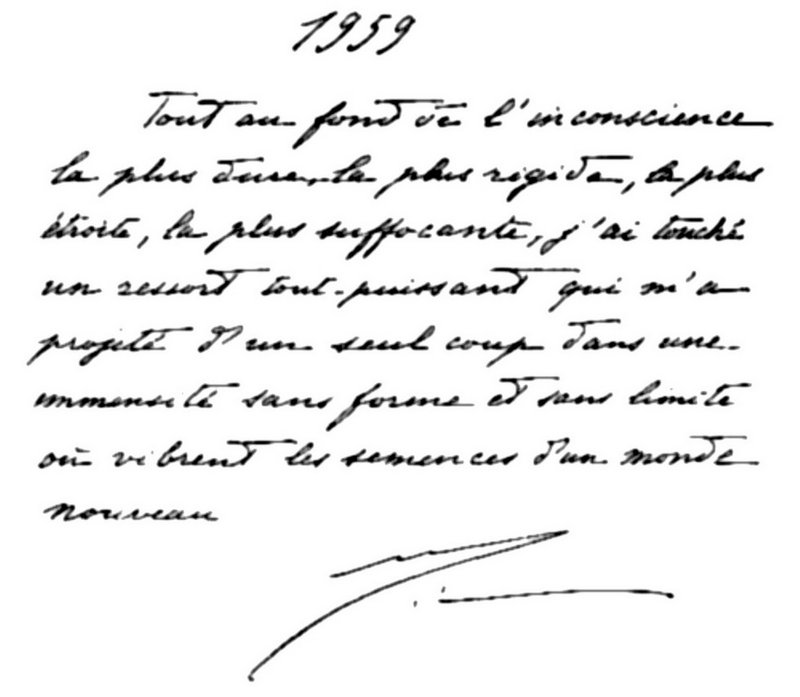 1959
Tout au fond de l'inconscience
la plus dure, la plus rigide, la plus
étroite, la plus suffocante, j'ai touché
un ressort tout-puissant qui m'a
projeté d'un seul coup dans une
immensité sans forme et sans limite
où vibrent les semences d'un monde
nouveau